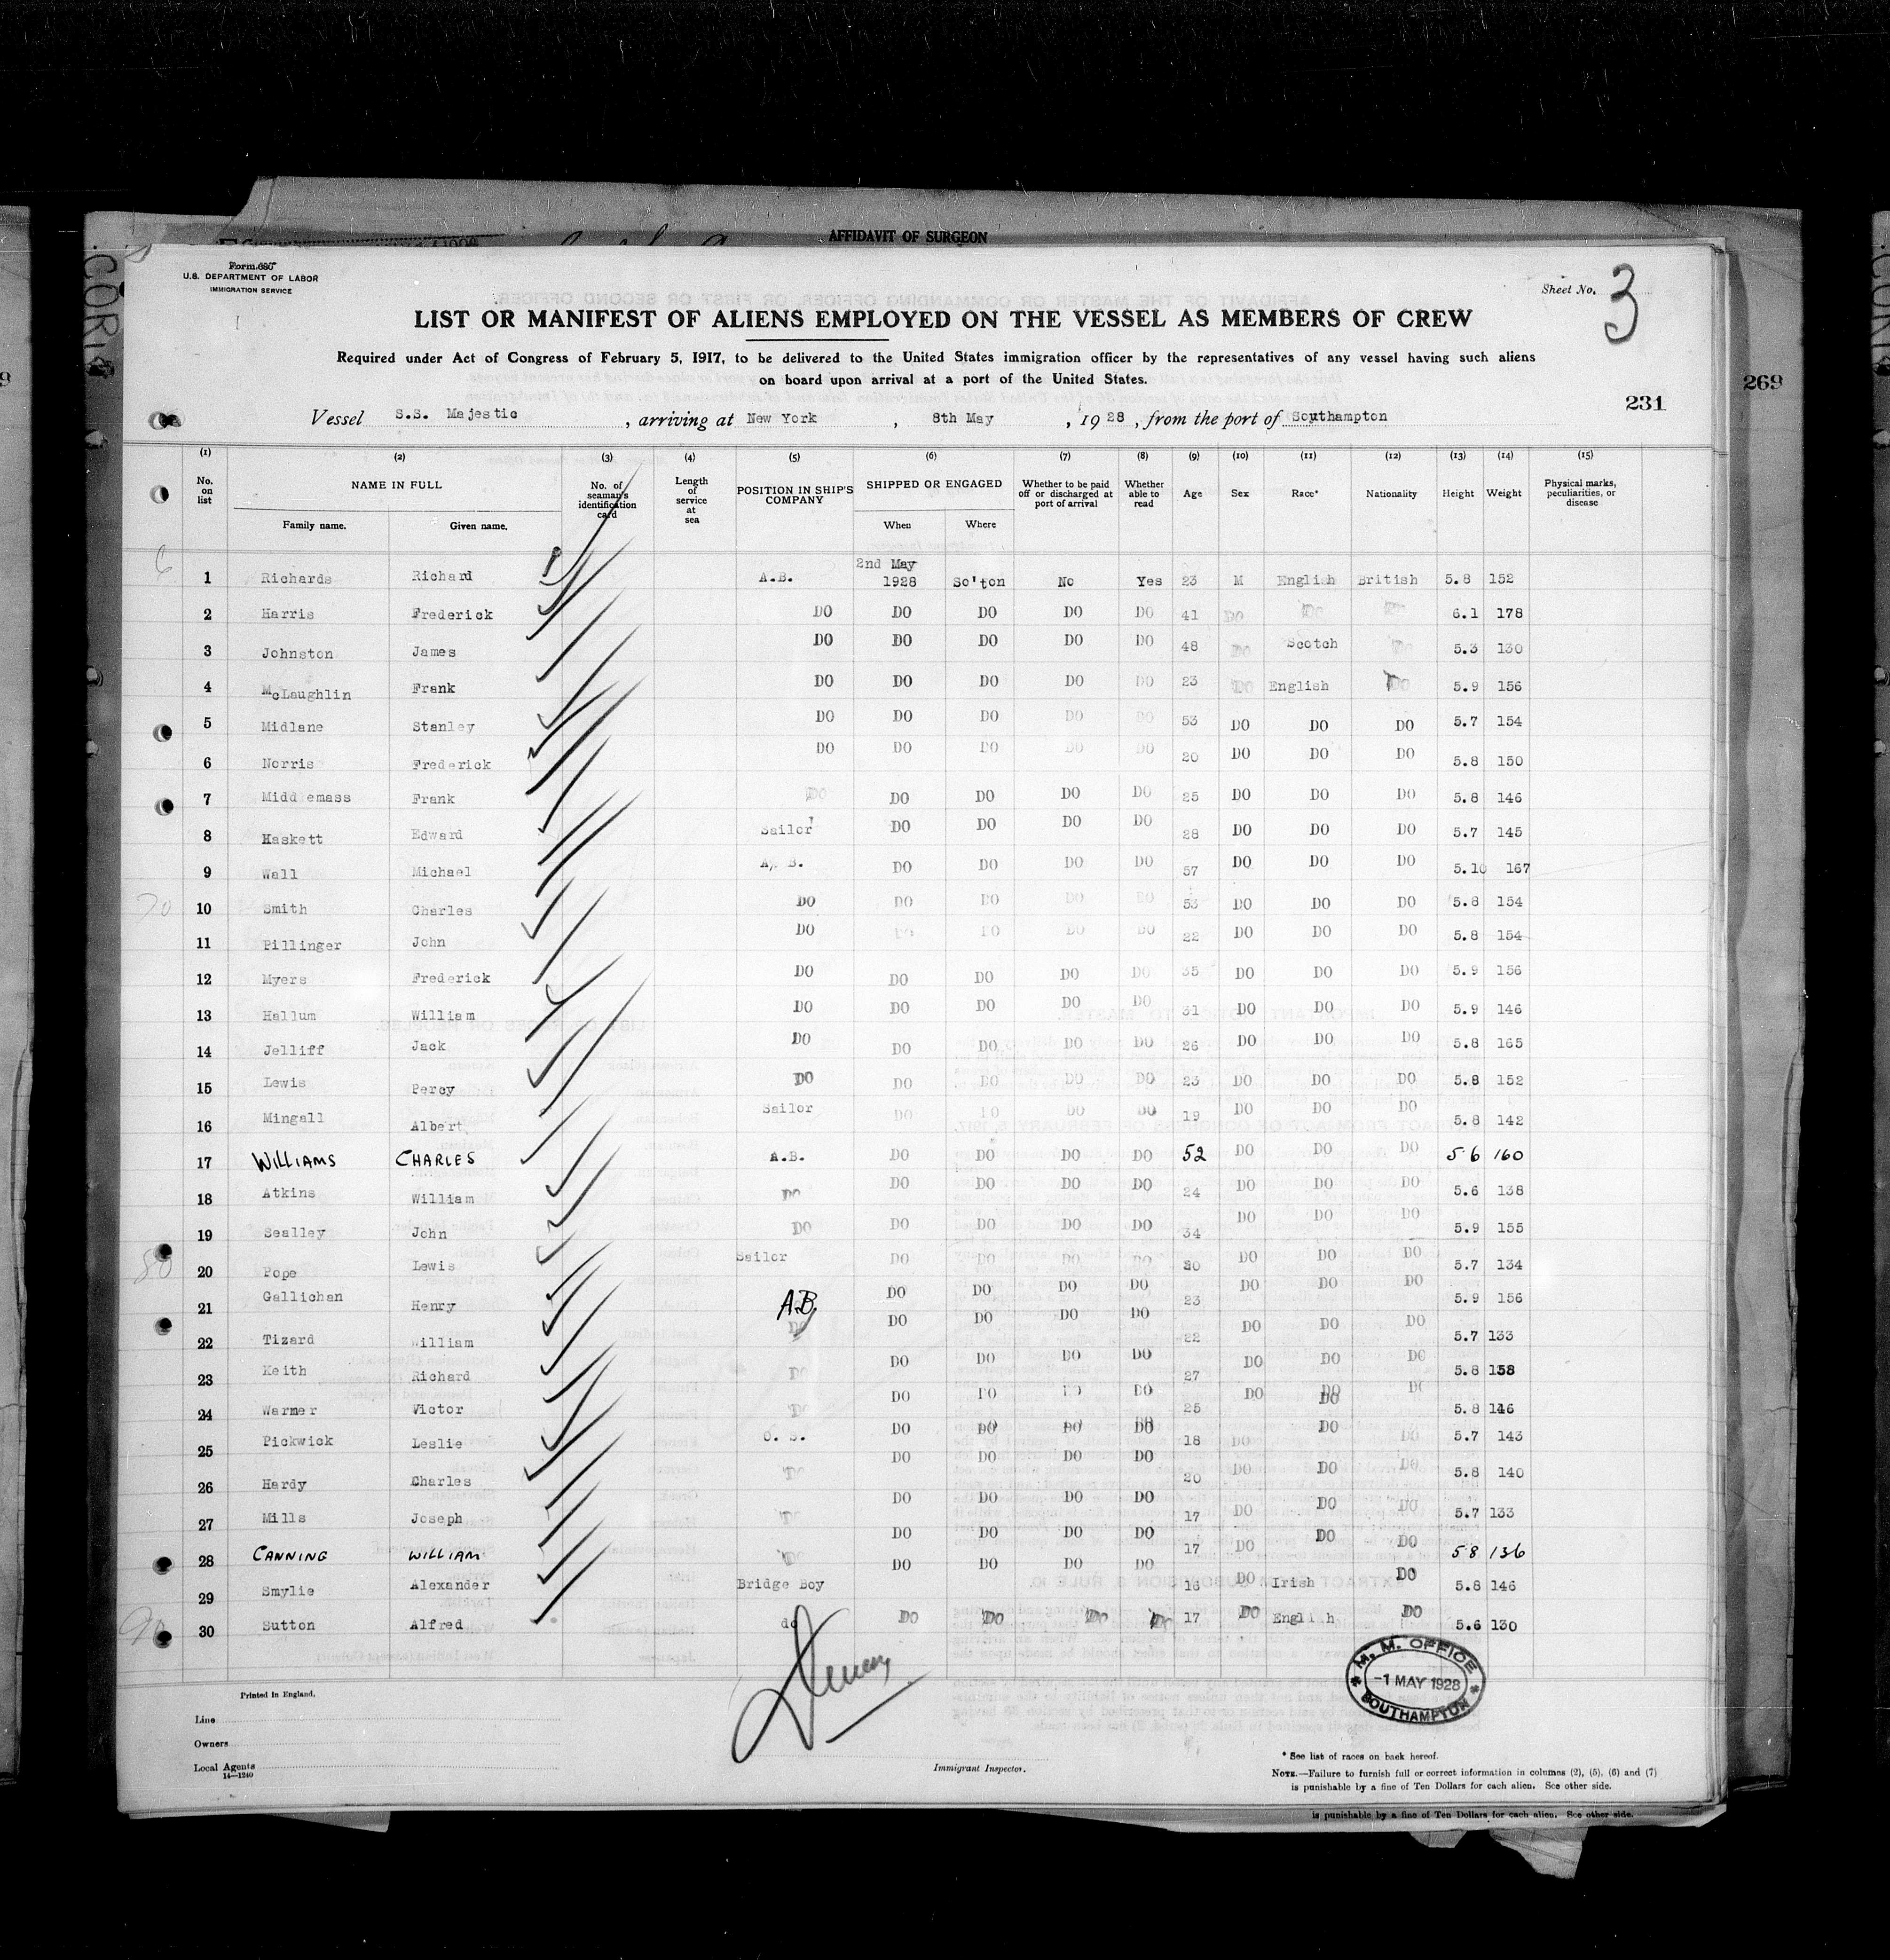 AFFIDAVIT OF SURGEON
Form 680
U.S. DEPARTMENT OF LABOR
IMMIGRATION SERVICE
Sheet No. 3
LIST OR MANIFEST OF ALIENS EMPLOYED ON THE VESSEL AS MEMBERS OF CREW
Required under Act of Congress of February 5, 1917, to be delivered to the United States immigration officer by the representatives of any vessel having such aliens
on board upon arrival at a port of the United States.
269
231
Vessel S.S. Majestic , arriving at New York , 8th May , 1928 , from the port of Southampton
(1) (2) (3) (4) (5) (6) (7) (8) (9) (10) (11) (12) (13) (14) (15)
No. on list NAME IN FULL Family name. Given name. No. of seaman's identification card Length of service at sea POSITION IN SHIP'S COMPANY SHIPPED OR ENGAGED When Where Whether to be paid off or discharged at port of arrival Whether able to read Age Sex Race* Nationality Height Weight Physical marks, peculiarities, or disease
1 Richards Richard A.B. 2nd May 1928 So'ton No Yes 23 M English British 5.8 152
2 Harris Frederick DO DO DO DO DO 41 DO DO DO 6.1 178
3 Johnston James DO DO DO DO DO 48 DO Scotch DO 5.3 130
4 McLaughlin Frank DO DO DO DO DO 23 DO English DO 5.9 156
5 Midlane Stanley DO DO DO DO DO 53 DO DO DO 5.7 154
6 Norris Frederick DO DO DO DO DO 20 DO DO DO 5.8 150
7 Midd emass Frank DO DO DO DO DO 25 DO DO DO 5.8 146
8 Haskett Edward Sailor DO DO DO DO 28 DO DO DO 5.7 145
9 Wall Michael A. B. DO DO DO DO 57 DO DO DO 5.10 167
10 Smith Charles DO DO DO DO DO 53 DO DO DO 5.8 154
11 Pillinger John DO DO DO DO DO 22 DO DO DO 5.8 154
12 Myers Frederick DO DO DO DO DO 35 DO DO DO 5.9 156
13 Hallum William DO DO DO DO DO 31 DO DO DO 5.9 146
14 Jelliff Jack DO DO DO DO DO 26 DO DO DO 5.8 165
15 Lewis Percy DO DO DO DO DO 23 DO DO DO 5.8 152
16 Mingall Albert Sailor DO DO DO DO 19 DO DO DO 5.8 142
17 WILLIAMS CHARLES A.B. DO DO DO DO 52 DO DO DO 5 6 160
18 Atkins William DO DO DO DO DO 24 DO DO DO 5.6 138
19 Sealley John DO DO DO DO DO 34 DO DO DO 5.9 155
20 Pope Lewis Sailor DO DO DO DO 30 DO DO DO 5.7 134
21 Gallichan Henry A.B. DO DO DO DO 23 DO DO DO 5.9 156
22 Tizard William DO DO DO DO DO 22 DO DO DO 5.7 133
23 Keith Richard DO DO DO DO DO 27 DO DO DO 5.8 158
24 Warner Victor DO DO DO DO DO 25 DO DO DO 5.8 146
25 Pickwick Leslie O. S. DO DO DO DO 18 DO DO DO 5.7 143
26 Hardy Charles DO DO DO DO DO 20 DO DO DO 5.8 140
27 Mills Joseph DO DO DO DO DO 17 DO DO DO 5.7 133
28 CANNING WILLIAM DO DO DO DO DO 17 DO DO DO 5 8 136
29 Smylie Alexander Bridge Boy DO DO DO DO 16 DO Irish DO 5.8 146
30 Sutton Alfred do DO DO DO DO 17 DO English DO 5.6 130
M. M. OFFICE
-1 MAY 1928
SOUTHAMPTON
Printed in England.
Line
Owners
Local Agents
14—1240
Immigrant Inspector.
* See list of races on back hereof.
NOTE.—Failure to furnish full or correct information in columns (2), (5), (6) and (7)
is punishable by a fine of Ten Dollars for each alien. See other side.
is punishable by a fine of Ten Dollars for each alien. See other side.